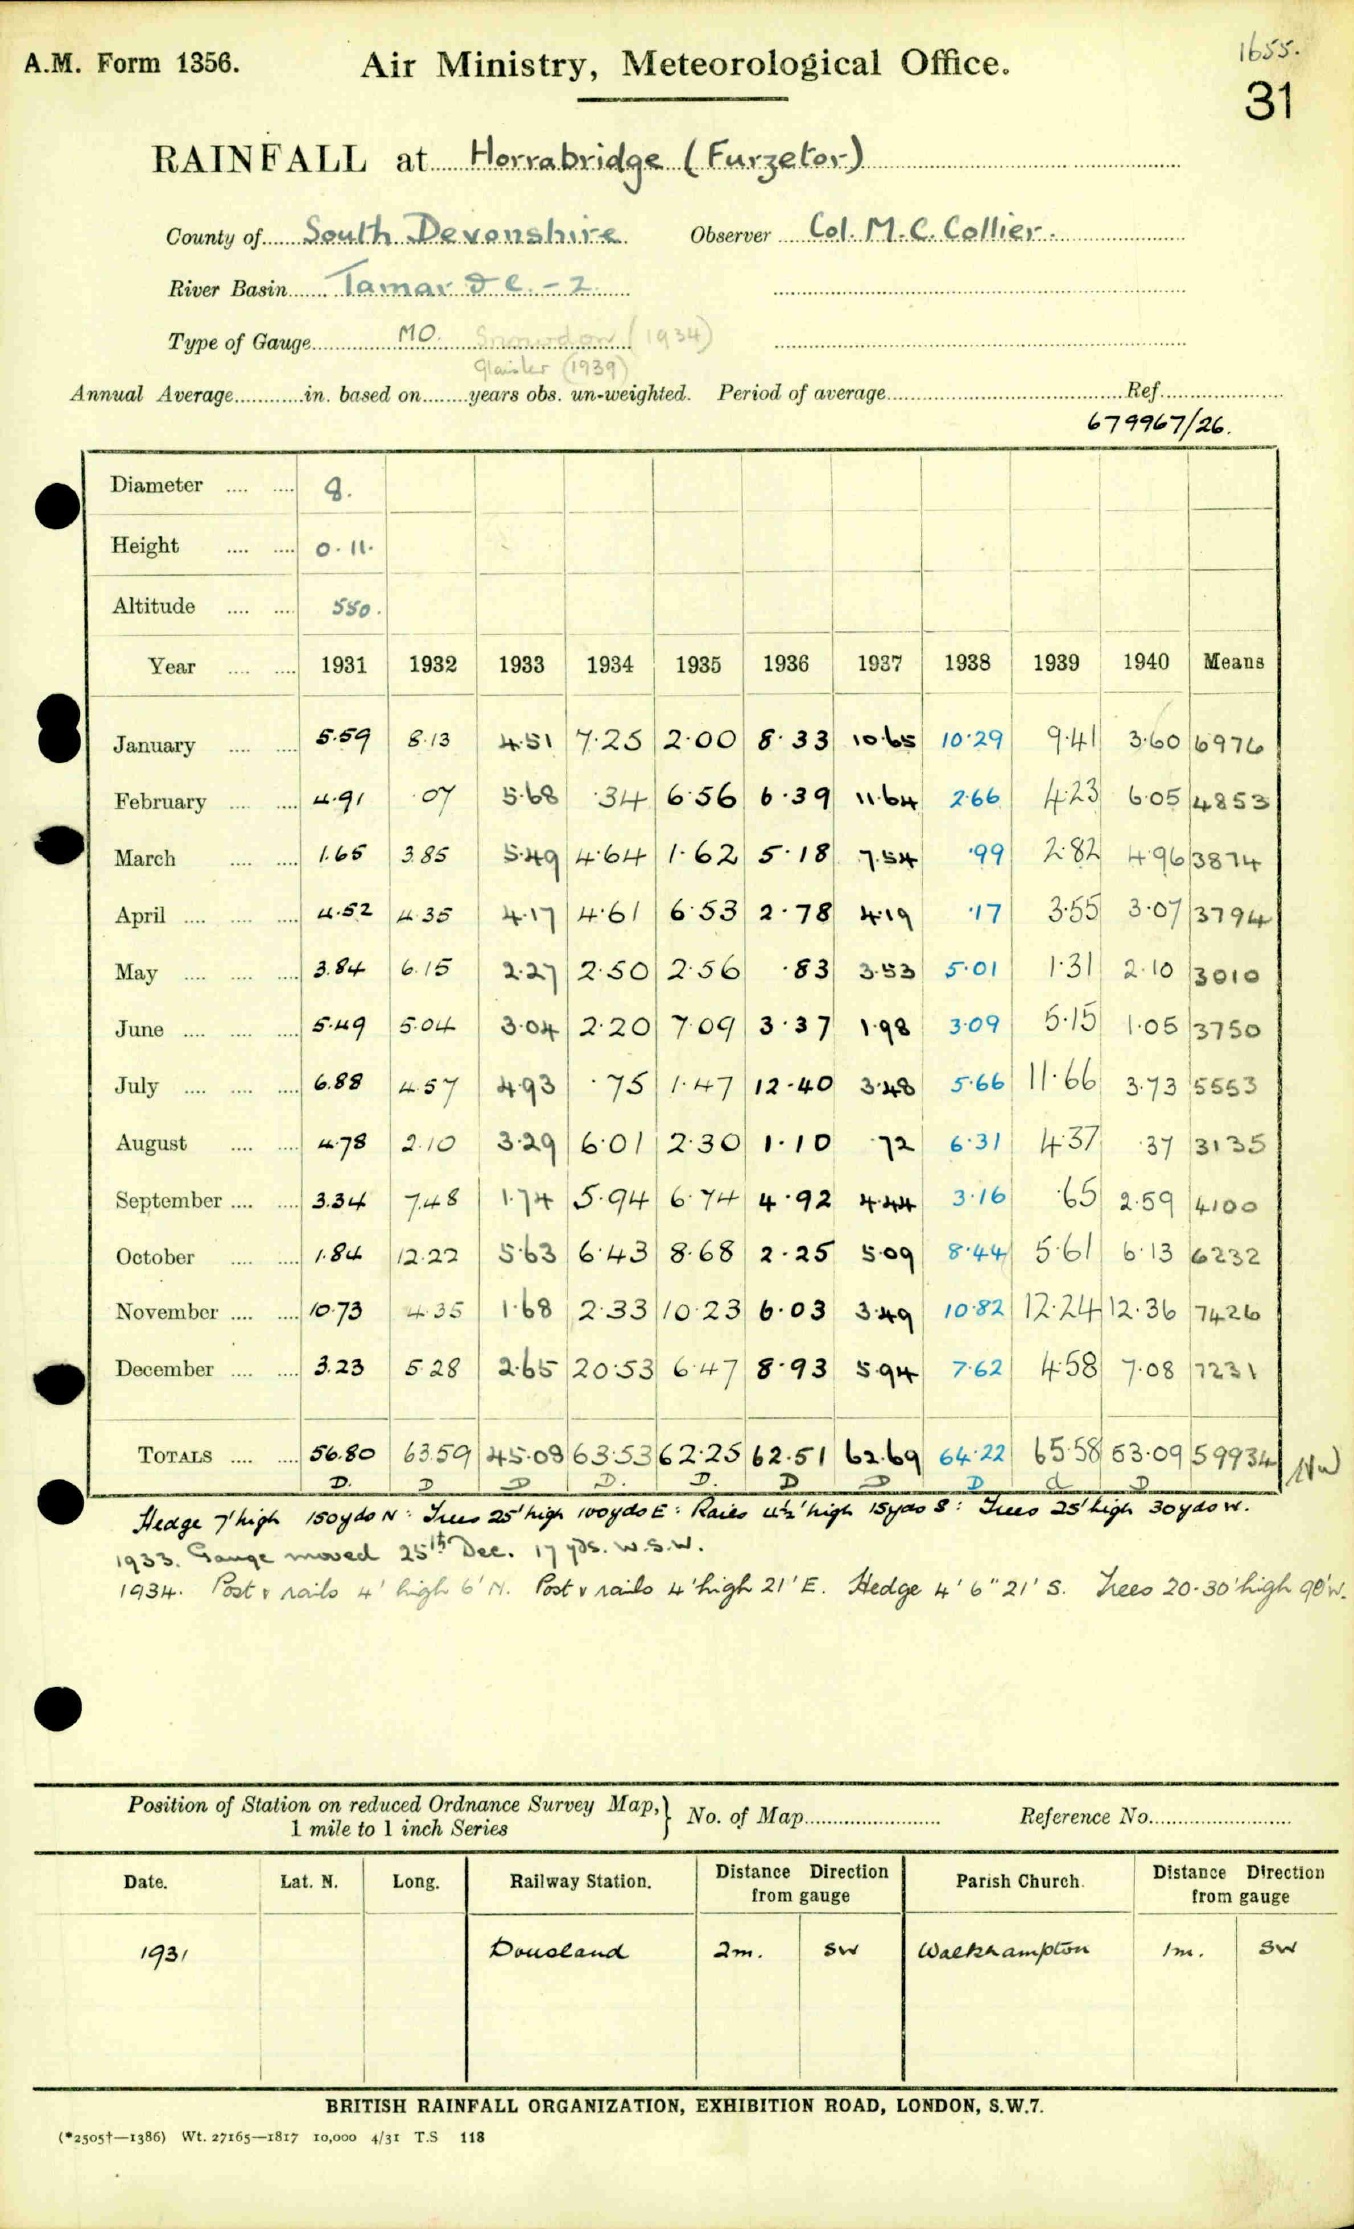 1655.
A.M. Form 1356. Air Ministry, Meteorological Office.
31
RAINFALL at Horrabridge (Furzetor)
County of South Devonshire Observer Col. M.C. Collier.
River Basin Tamar &c. - 2
Type of Gauge MO. Snowdon (1934)
Glaisher (1939)
Annual Average in. based on years obs. un-weighted. Period of average Ref.
679967/26.
Diameter 8.
Height 0.11.
Altitude 550.
Year 1931 1932 1933 1934 1935 1936 1937 1938 1939 1940 Means
January 5.59 8.13 4.51 7.25 2.00 8.33 10.65 10.29 9.41 3.60 6976
February 4.91 .07 5.68 .34 6.56 6.39 11.64 2.66 4.23 6.05 4853
March 1.65 3.85 5.49 4.64 1.62 5.18 7.54 .99 2.82 4.96 3874
April 4.52 4.35 4.17 4.61 6.53 2.78 4.19 .17 3.55 3.07 3794
May 3.84 6.15 2.27 2.50 2.56 .83 3.53 5.01 1.31 2.10 3010
June 5.49 5.04 3.04 2.20 7.09 3.37 1.98 3.09 5.15 1.05 3750
July 6.88 4.57 4.93 .75 1.47 12.40 3.48 5.66 11.66 3.73 5553
August 4.78 2.10 3.29 6.01 2.30 1.10 .72 6.31 4.37 .37 3135
September 3.34 7.48 1.74 5.94 6.74 4.92 4.44 3.16 .65 2.59 4100
October 1.84 12.22 5.63 6.43 8.68 2.25 5.09 8.44 5.61 6.13 6232
November 10.73 4.35 1.68 2.33 10.23 6.03 3.49 10.82 12.24 12.36 7426
December 3.23 5.28 2.65 20.53 6.47 8.93 5.94 7.62 4.58 7.08 7231
TOTALS 56.80 63.59 45.08 63.53 62.25 62.51 62.69 64.22 65.58 53.09 59934
D. D D D. D. D D D d D
Hedge 7' high 150yds N: Trees 25' high 100yds E: Rails 4½' high 15yds S: Trees 25' high 30yds W.
1933. Gauge moved 25th Dec. 17 yds. W.S.W.
1934. Post & rails 4' high 6' N. Post & rails 4' high 21' E. Hedge 4' 6" 21' S. Trees 20-30' high 90'W.
Position of Station on reduced Ordnance Survey Map,
1 mile to 1 inch Series } No. of Map Reference No.
Date. Lat. N. Long. Railway Station. Distance Direction from gauge Parish Church. Distance Direction from gauge
1931 Dousland 2m. SW Walkhampton 1m. SW
BRITISH RAINFALL ORGANIZATION, EXHIBITION ROAD, LONDON, S.W.7.
(*2505†—1386) Wt. 27165—1817 10,000 4/31 T.S 118